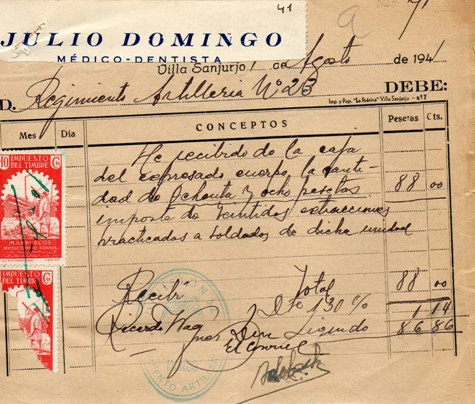 41
71
JULIO DOMINGO
MÉDICO-DENTISTA
Villa Sanjurjo 1 de Agosto de 1941
D. Regimiento Artilleria Nº 23 DEBE:
Imp. y Pap. "La Ibérica" Villa Sanjurjo
Mes Día CONCEPTOS Pesetas Cts.
He recibido de la caja
del expresado cuerpo la canti
dad de Ochenta y ocho pesetas 88 00
importe de veintidos extracciones
practicadas a soldados de dicha unidad
10 IMPUESTO DEL TIMBRE Cs
MARRUECOS
IMPUESTO DEL TIMBRE Cs
Total 88 00
Recibí Dto 1'30 % 1 14
Ricardo 86 86